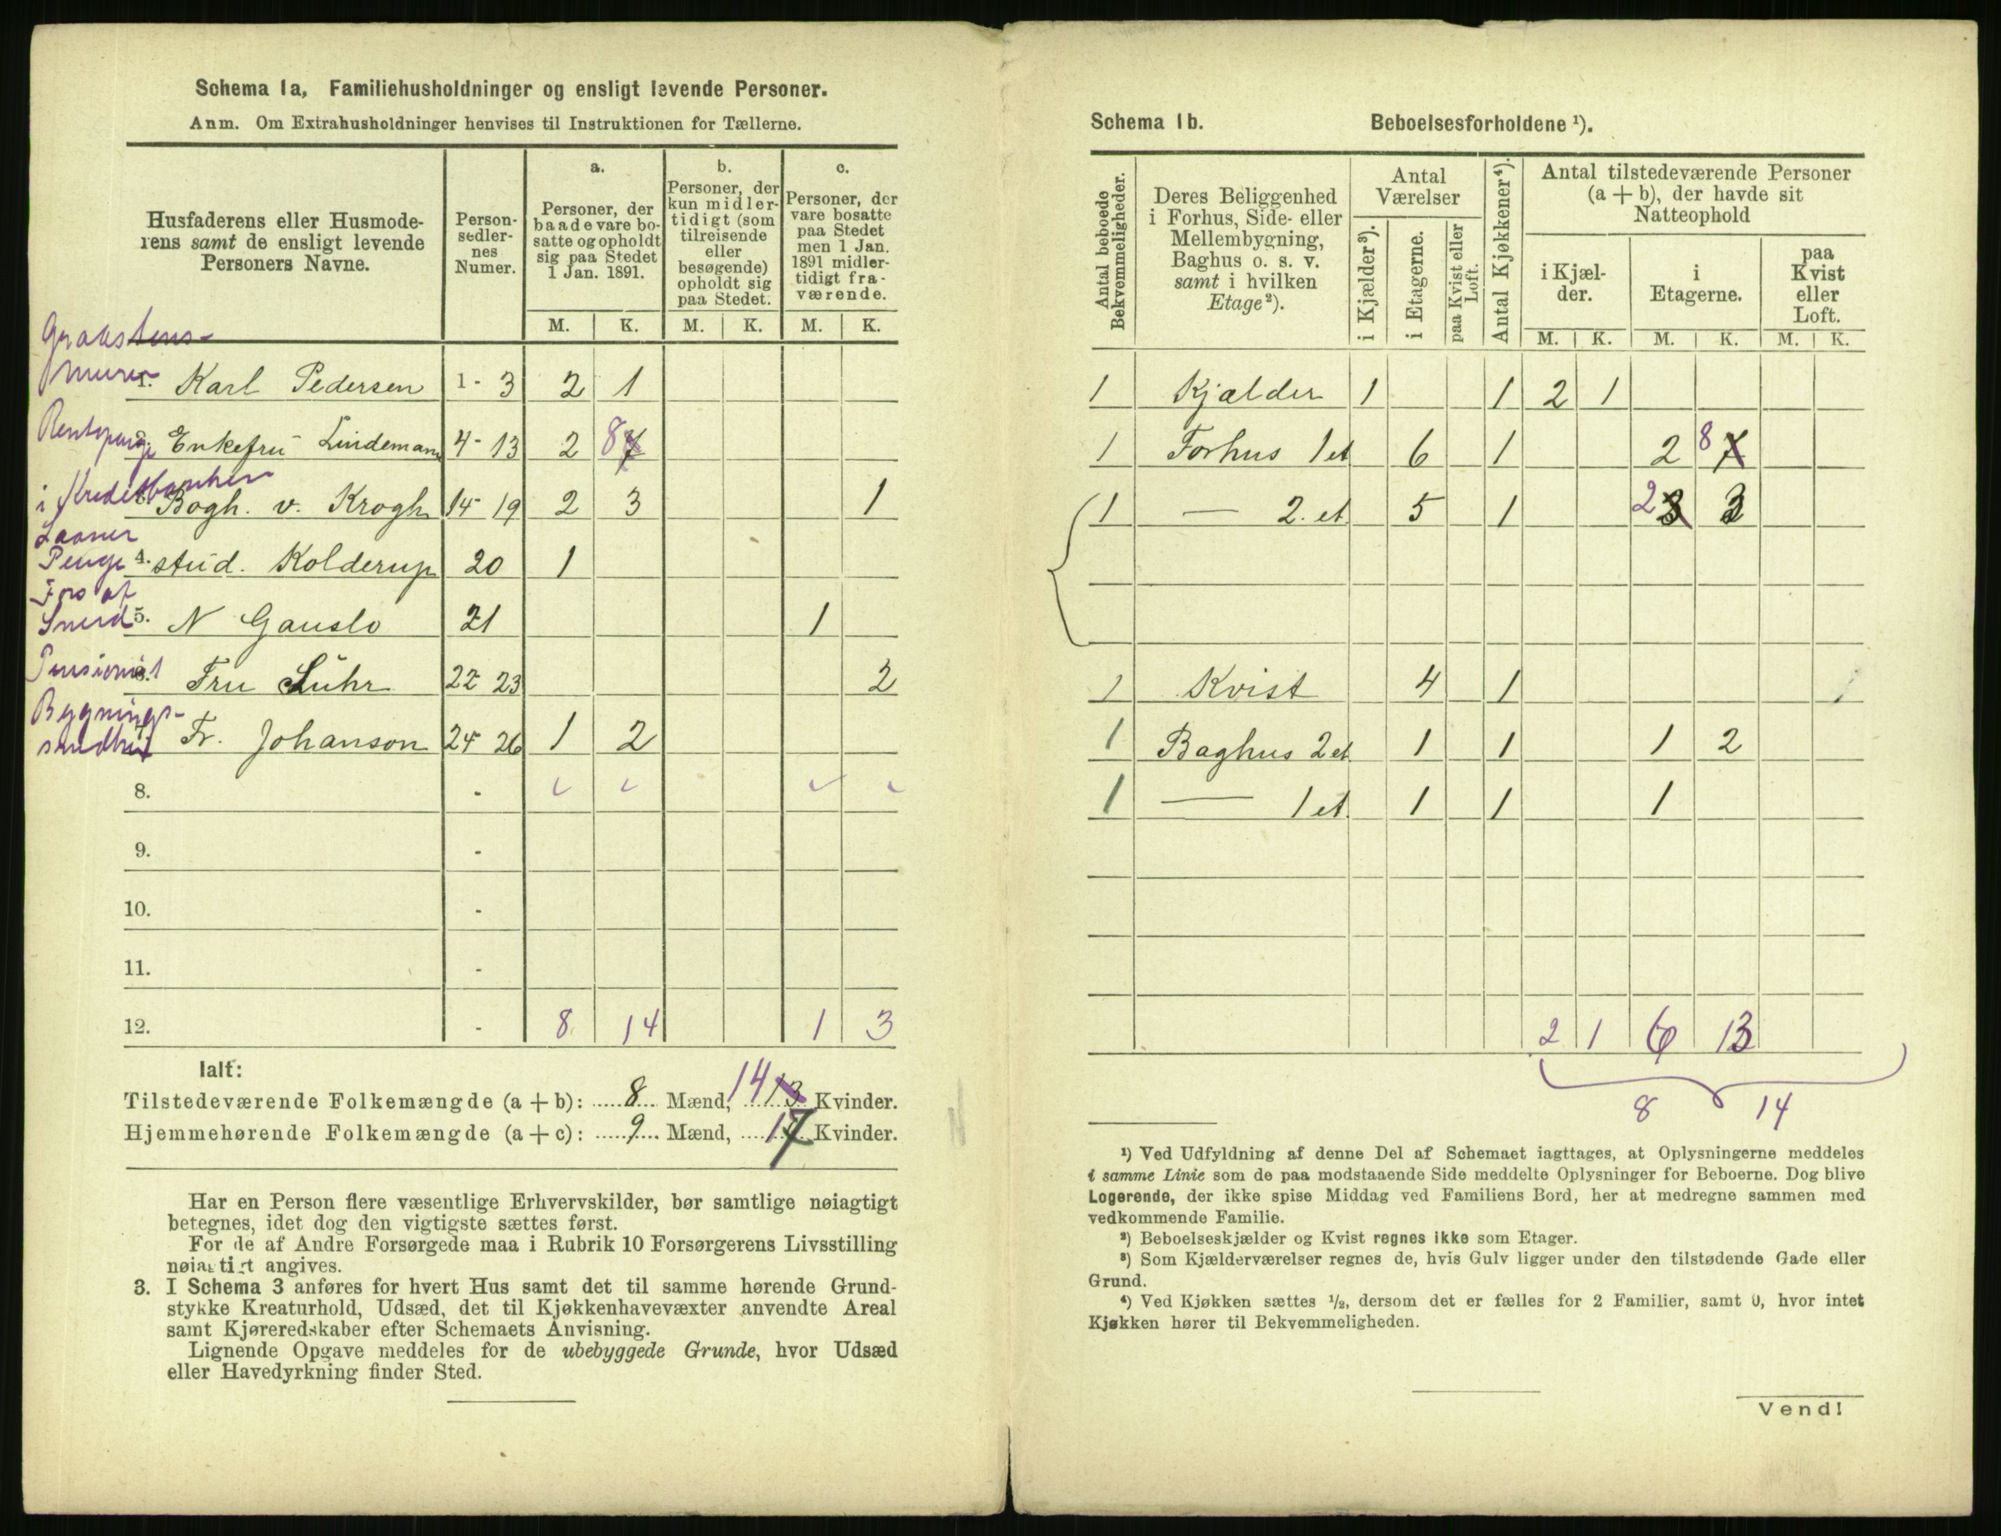 Schema 1a, Familiehusholdninger og ensligt levende Personer.
Anm. Om Extrahusholdninger henvises til Instruktionen for Tællerne.
Husfaderens eller Husmode-
rens samt de ensligt levende
Personers Navne.
Person-
sedler-
nes
Numer.
a.
Personer, der
baade vare bo-
satte og opholdt
sig paa Stedet
1 Jan. 1891.
b.
Personer, der
kun midler-
tidigt (som
tilreisende
eller
besøgende)
opholdt sig
paa Stedet.
c.
Personer, der
vare bosatte
paa Stedet
men 1 Jan.
1891 midler-
tidigt fra-
værende.
M. K. M. K. M. K.
1. Karl Pedersen 1 - 3 2 1
Enkefru Lindemann 4 - 13 2 8 7
Bogh. v. Krogh 14 - 19 2 3 1
Laaner
Penge 4. stud. Kolderup 20 1
Fors af
5. N Gauslo 21 1
Pensionist
Fru Lühr 22 23 2
Bygnings-
Fr. Johanson 24 26 1 2
8. -
9. -
10. -
11. -
12. - 8 14 1 3
Ialt:
Tilstedeværende Folkemængde (a + b): 8 Mænd, 14 13 Kvinder.
Hjemmehørende Folkemængde (a + c): 9 Mænd, 17 Kvinder.
Har en Person flere væsentlige Erhvervskilder, bør samtlige nøiagtigt
betegnes, idet dog den vigtigste sættes først.
For de af Andre Forsørgede maa i Rubrik 10 Forsørgerens Livsstilling
nøiagtigt angives.
3. I Schema 3 anføres for hvert Hus samt det til samme hørende Grund-
stykke Kreaturhold, Udsæd, det til Kjøkkenhavevæxter anvendte Areal
samt Kjøreredskaber efter Schemaets Anvisning.
Lignende Opgave meddeles for de ubebyggede Grunde, hvor Udsæd
eller Havedyrkning finder Sted.
Schema 1b. Beboelsesforholdene ¹).
Antal beboede
Bekvemmeligheder.
Deres Beliggenhed
i Forhus, Side- eller
Mellembygning,
Baghus o. s. v.
samt i hvilken
Etage ²).
Antal
Værelser
i Kjælder ³).
i Etagerne.
paa Kvist eller
Loft.
Antal Kjøkkener ⁴).
Antal tilstedeværende Personer
(a + b), der havde sit
Natteophold
i Kjæl-
der.
i
Etagerne.
paa
Kvist
eller
Loft.
M. K. M. K. M. K.
1 Kjælder 1 1 2 1
1 Forhus 1 et 6 1 2 8 7
1 — 2. et 5 1 2 3 3
1 Kvist 4 1
1 Baghus 2 et 1 1 1 2
1 — 1 et. 1 1 1
2 1 6 13
8 14
¹) Ved Udfyldning af denne Del af Schemaet iagttages, at Oplysningerne meddeles
i samme Linie som de paa modstaaende Side meddelte Oplysninger for Beboerne. Dog blive
Logerende, der ikke spise Middag ved Familiens Bord, her at medregne sammen med
vedkommende Familie.
²) Beboelseskjælder og Kvist regnes ikke som Etager.
³) Som Kjælderværelser regnes de, hvis Gulv ligger under den tilstødende Gade eller
Grund.
⁴) Ved Kjøkken sættes ½, dersom det er fælles for 2 Familier, samt 0, hvor intet
Kjøkken hører til Bekvemmeligheden.
Vend!